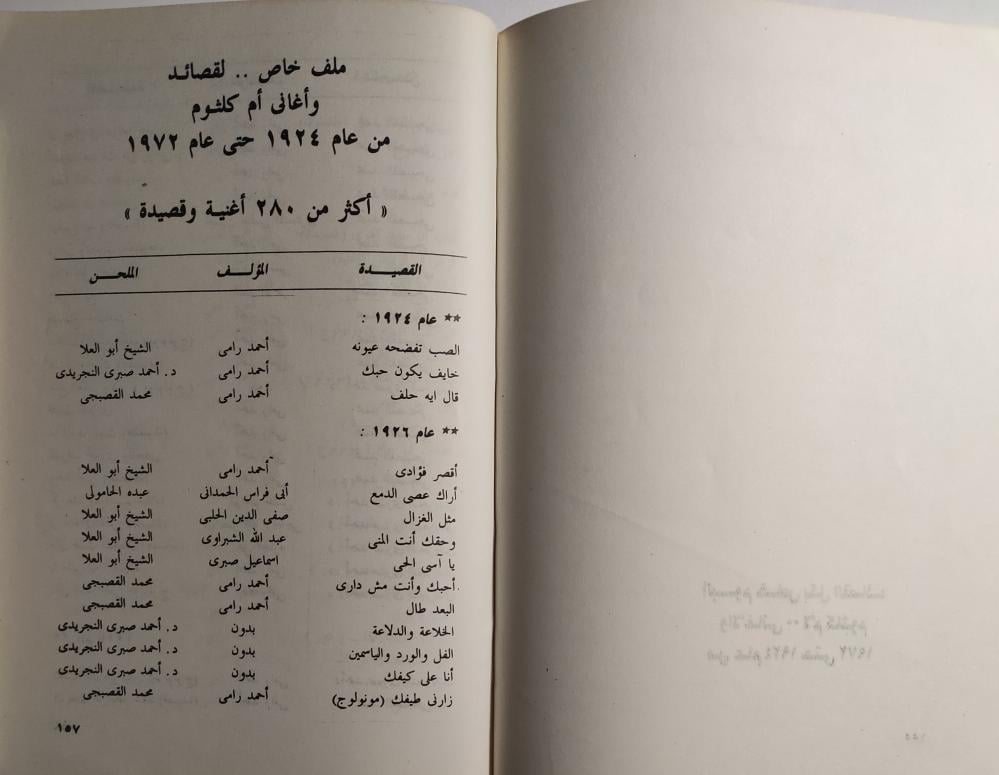 ملف خاص .. لقصائد
وأغانى أم كلثوم
من عام ١٩٢٤ حتى عام ١٩٧٢
« أكثر من ٢٨٠ أغنية وقصيدة »
القصيدة المؤلف الملحن
** عام ١٩٢٤ :
الصب تفضحه عيونه أحمد رامى الشيخ أبو العلا
خايف يكون حبك أحمد رامى د. أحمد صبرى النجريدى
قال ايه حلف أحمد رامى محمد القصبجى
** عام ١٩٢٦ :
أقصر فؤادى أحمد رامى الشيخ أبو العلا
أراك عصى الدمع أبى فراس الحمدانى عبده الحامولى
مثل الغزال صفى الدين الحلبى الشيخ أبو العلا
وحقك أنت المنى عبد الله الشبراوى الشيخ أبو العلا
يا آسى الحى اسماعيل صبرى الشيخ أبو العلا
أحبك وأنت مش دارى أحمد رامى محمد القصبجى
البعد طال أحمد رامى محمد القصبجى
الخلاعة والدلاعة بدون د. أحمد صبرى النجريدى
الفل والورد والياسمين بدون د. أحمد صبرى النجريدى
أنا على كيفك بدون د. أحمد صبرى النجريدى
زارنى طيفك (مونولوج) أحمد رامى محمد القصبجى
١٥٧